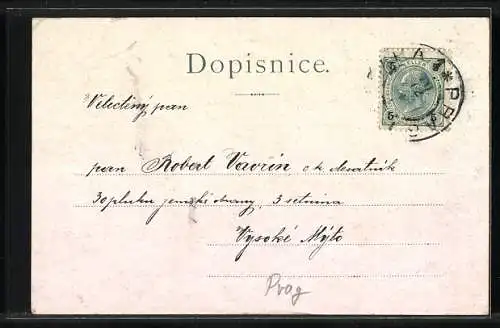 Dopisnice.
Velectěný pan
pan Robert Vavřín c. k. desátník
30 pluku zemské obrany, 3 setnina
Vysoké Mýto
Prag